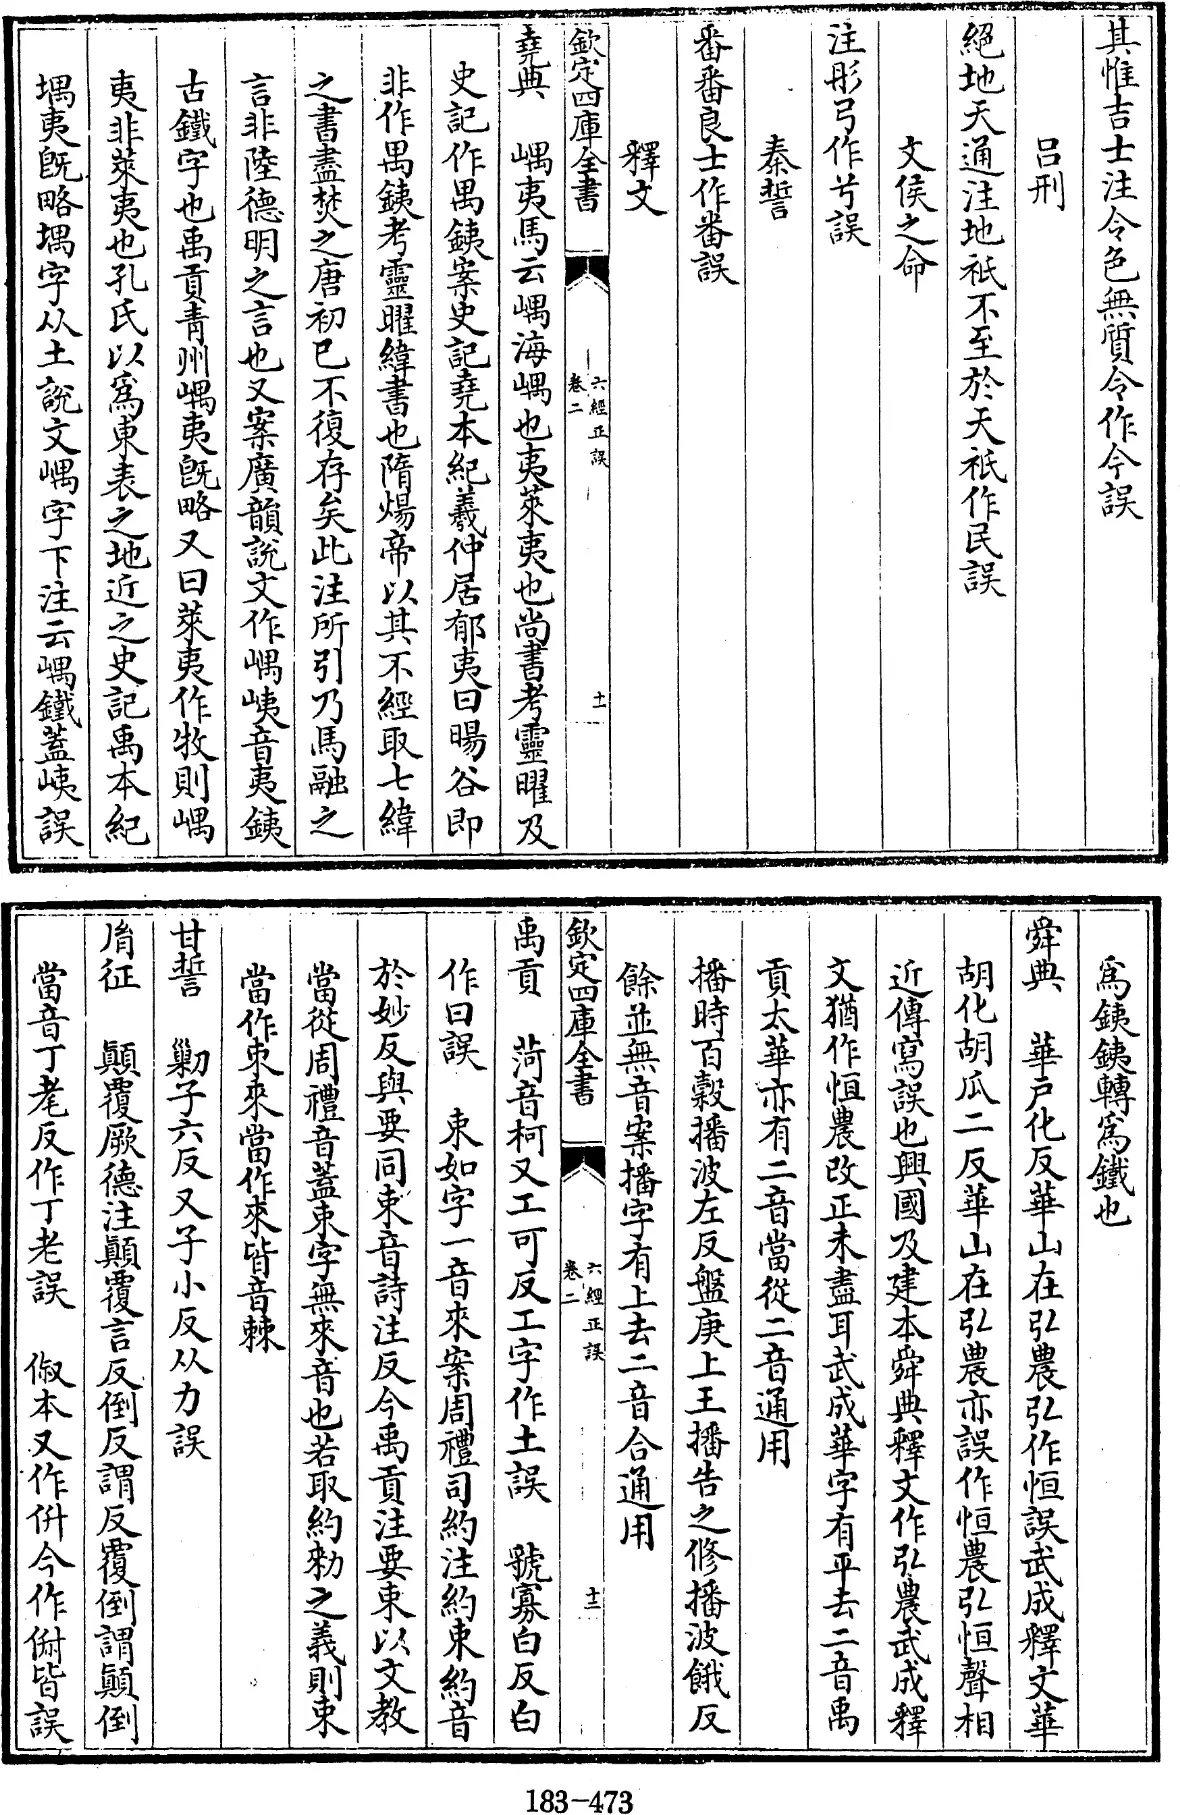 其惟吉士注令色無質令作今誤
呂刑
絕地天通注地祇不至於天祇作民誤
文侯之命
注彤弓作兮誤
秦誓
番番良士作畨誤
釋文
欽定四庫全書
六經正誤
卷二
十一
堯典 嵎夷馬云嵎海嵎也夷萊夷也尚書考靈曜及
史記作禺銕案史記堯本紀羲仲居郁夷曰暘谷即
非作禺銕考靈曜緯書也隋煬帝以其不經取七緯
之書盡焚之唐初已不復存矣此注所引乃馬融之
言非陸德明之言也又案廣韻說文作嵎峓音夷銕
古鐵字也禹貢青州嵎夷旣略又曰萊夷作牧則嵎
夷非萊夷也孔氏以為東表之地近之史記禹本紀
堣夷旣略堣字从土說文嵎字下注云嵎鐵蓋峓誤
為銕銕轉為鐵也
舜典 華户化反華山在弘農弘作恒誤武成釋文華
胡化胡瓜二反華山在弘農亦誤作恒農弘恒聲相
近傳寫誤也興國及建本舜典釋文作弘農武成釋
文猶作恒農改正未盡耳武成華字有平去二音禹
貢太華亦有二音當從二音通用
播時百穀播波左反盤庚上王播告之修播波餓反
餘並無音案播字有上去二音合通用
欽定四庫全書
六經正誤
卷二
十二
禹貢 菏音柯又工可反工字作土誤 號寡白反白
作曰誤 束如字一音來案周禮司約注約束約音
於妙反與要同束音詩注反今禹貢注要束以文教
當從周禮音蓋束字無來音也若取約勑之義則束
當作朿來當作朿皆音棘
甘誓 勦子六反又子小反从力誤
胤征 顛覆厥德注顛覆言反倒反謂反覆倒謂顛倒
當音丁老反作丁老誤 俶本又作㑂今作㑂皆誤
183-473